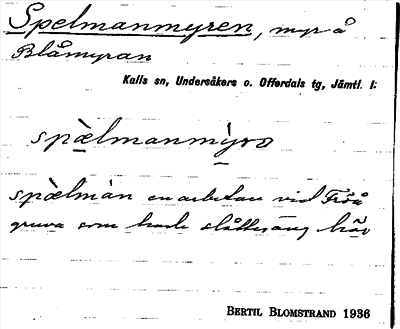 Spelmanmyren, myr å
Blåmyran
Kalls sn, Undersåkers o. Offerdals tg, Jämtl. l:
spæ̀lmanmỳrɑ
spæ̀lmàn en arbetare vid Fröå
gruva som hade slåtteräng här
BERTIL BLOMSTRAND 1936